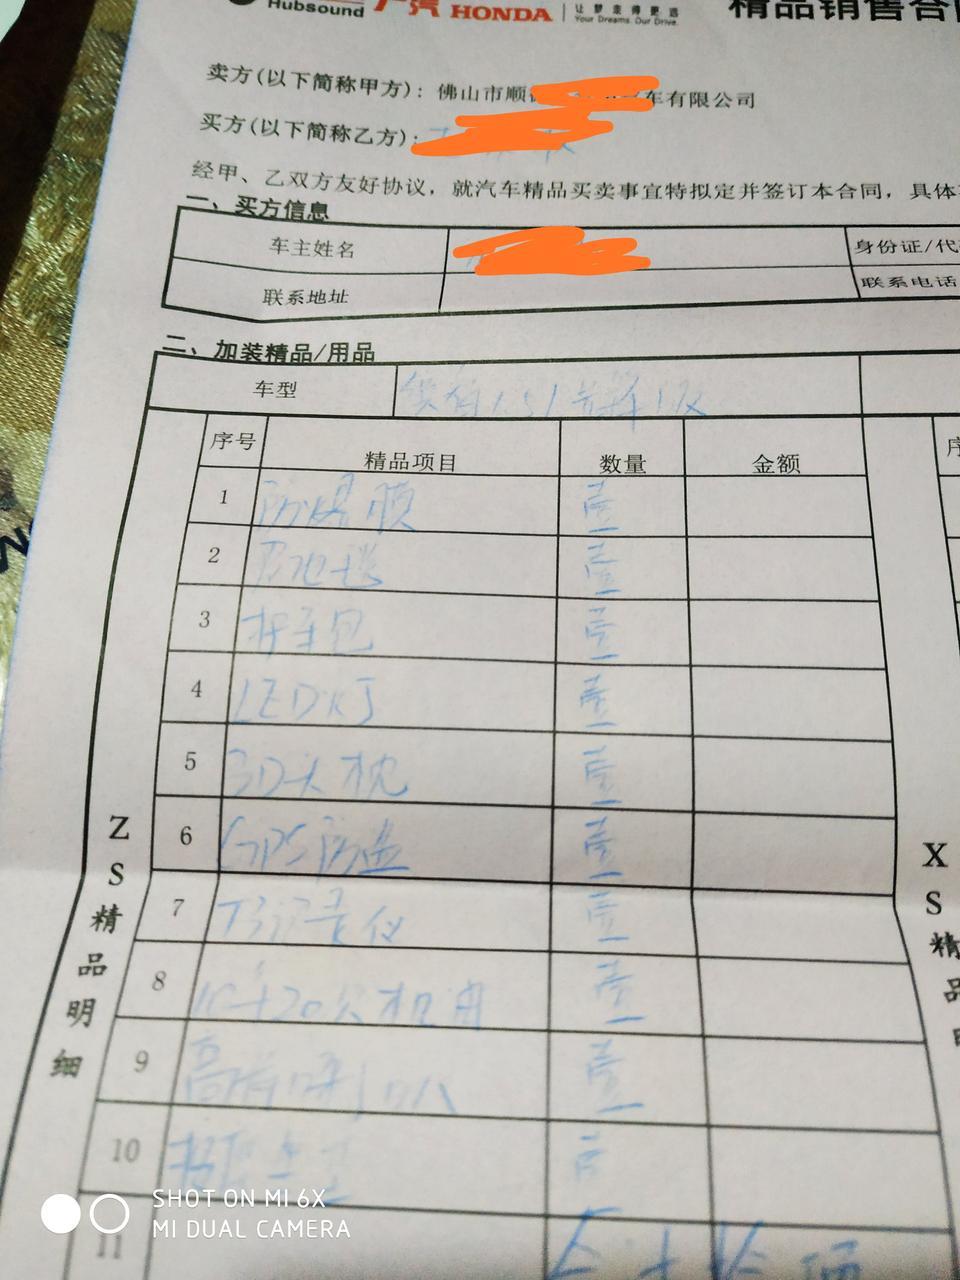 Hubsound 广汽 HONDA 让梦走得更远 Your Dreams. Our Drive. 精品销售合
卖方(以下简称甲方)：佛山市顺 车有限公司
买方(以下简称乙方)：
经甲、乙双方友好协议，就汽车精品买卖事宜特拟定并签订本合同，具体
一、买方信息
车主姓名 身份证/代
联系地址 联系电话
二、加装精品/用品
车型
序号 精品项目 数量 金额 序
1 防爆膜 壹
2 地毯 壹
3 护车包 壹
4 LED灯 壹
5 3D头枕 壹
6 GPS防盗 壹
7 记录仪 壹
8 机油 壹
9 高 喇叭 壹
10
11
ZS精品明细
XS精品明
SHOT ON MI 6X
MI DUAL CAMERA